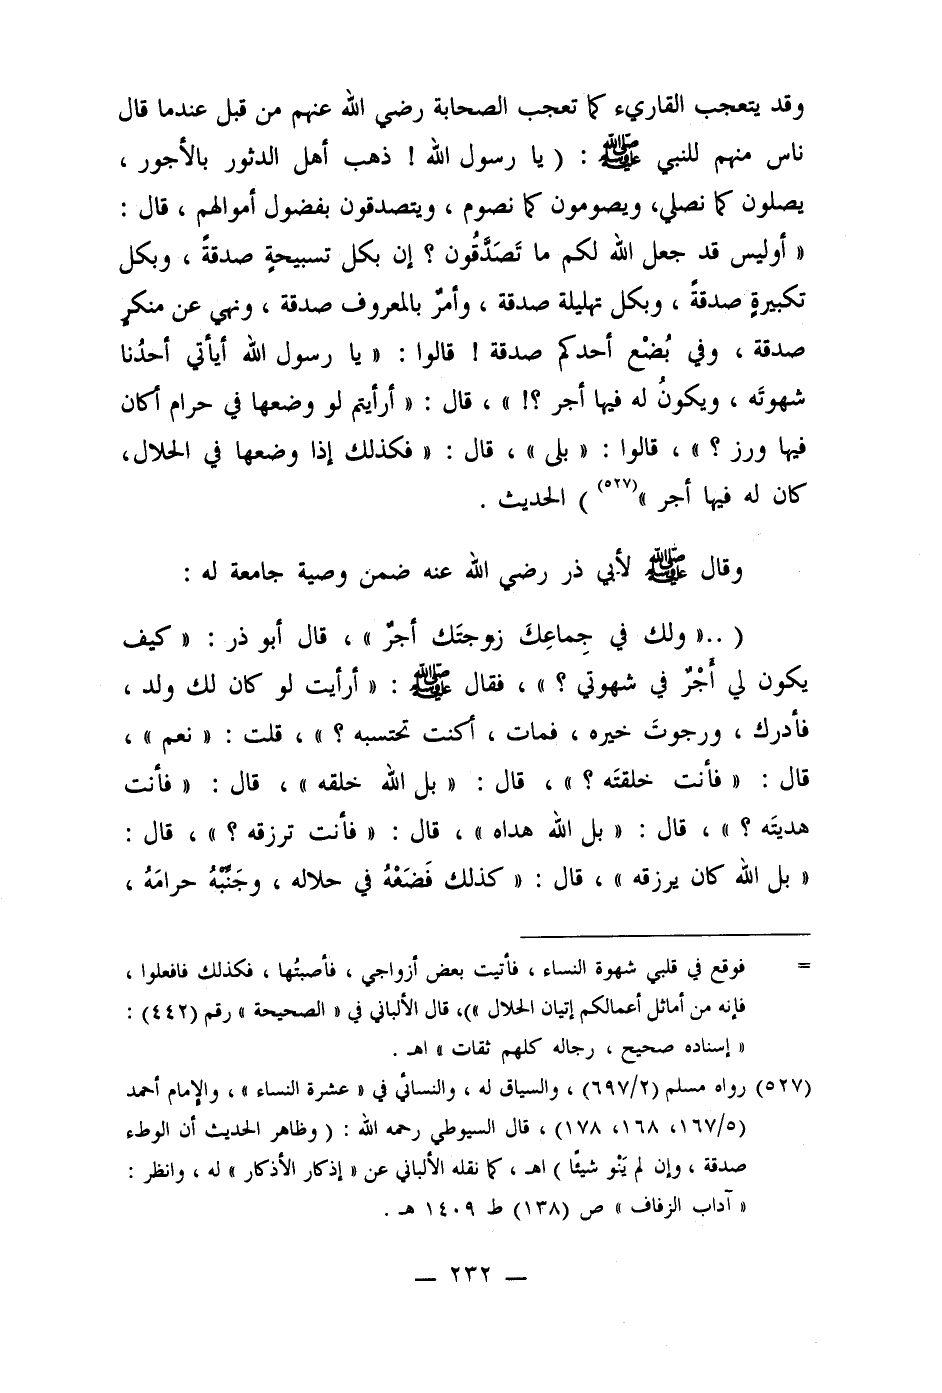 وقد يتعجب القاريء كما تعجب الصحابة رضي الله عنهم من قبل عندما قال
ناس منهم للنبي ﷺ : ( يا رسول الله ! ذهب أهل الدثور بالأجور ،
يصلون كما نصلي، ويصومون كما نصوم ، ويتصدقون بفضول أموالهم ، قال :
« أوليس قد جعل الله لكم ما تَصَدَّقُون ؟ إن بكل تسبيحةٍ صدقةً ، وبكل
تكبيرةٍ صدقةً ، وبكل تهليلة صدقة ، وأمرٌ بالمعروف صدقة ، ونهي عن منكرٍ
صدقة ، وفي بُضْع أحدكم صدقة ! قالوا : « يا رسول الله أيأتي أحدُنا
شهوتَه ، ويكونُ له فيها أجر ؟! » ، قال : « أرأيتم لو وضعها في حرام أكان
فيها ورز ؟ » ، قالوا : « بلى » ، قال : « فكذلك إذا وضعها في الحلال،
كان له فيها أجر »(٥٢٧) ) الحديث .
وقال ﷺ لأبي ذر رضي الله عنه ضمن وصية جامعة له :
( ..« ولك في جِماعِكَ زوجتَك أجرٌ » ، قال أبو ذر : « كيف
يكون لي أَجْرٌ في شهوتي ؟ » ، فقال ﷺ : « أرأيت لو كان لك ولد ،
فأدرك ، ورجوتَ خيره ، فمات ، أكنت تحتسبه ؟ » ، قلت : « نعم » ،
قال : « فأنت خلقتَه ؟ » ، قال : « بل الله خلقه » ، قال : « فأنت
هديتَه ؟ » ، قال : « بل الله هداه » ، قال : « فأنت ترزقه ؟ » ، قال :
« بل الله كان يرزقه » ، قال : « كذلك فَضَعْهُ في حلاله ، وجَنِّبْهُ حرامَهُ ،
= فوقع في قلبي شهوة النساء ، فأتيت بعض أزواجي ، فأصبتُها ، فكذلك فافعلوا ،
فإنه من أماثل أعمالكم إتيان الحلال »)، قال الألباني في « الصحيحة » رقم (٤٤٢) :
« إسناده صحيح ، رجاله كلهم ثقات » اهـ .
(٥٢٧) رواه مسلم (٦٩٧/٢) ، والسياق له ، والنسائي في « عشرة النساء » ، والإمام أحمد
(١٦٧/٥، ١٦٨، ١٧٨) ، قال السيوطي رحمه الله : ( وظاهر الحديث أن الوطء
صدقة ، وإن لم يَنْو شيئًا ) اهـ ، كما نقله الألباني عن « إذكار الأذكار » له ، وانظر :
« آداب الزفاف » ص (١٣٨) ط ١٤٠٩ هـ .
— ٢٣٢ —